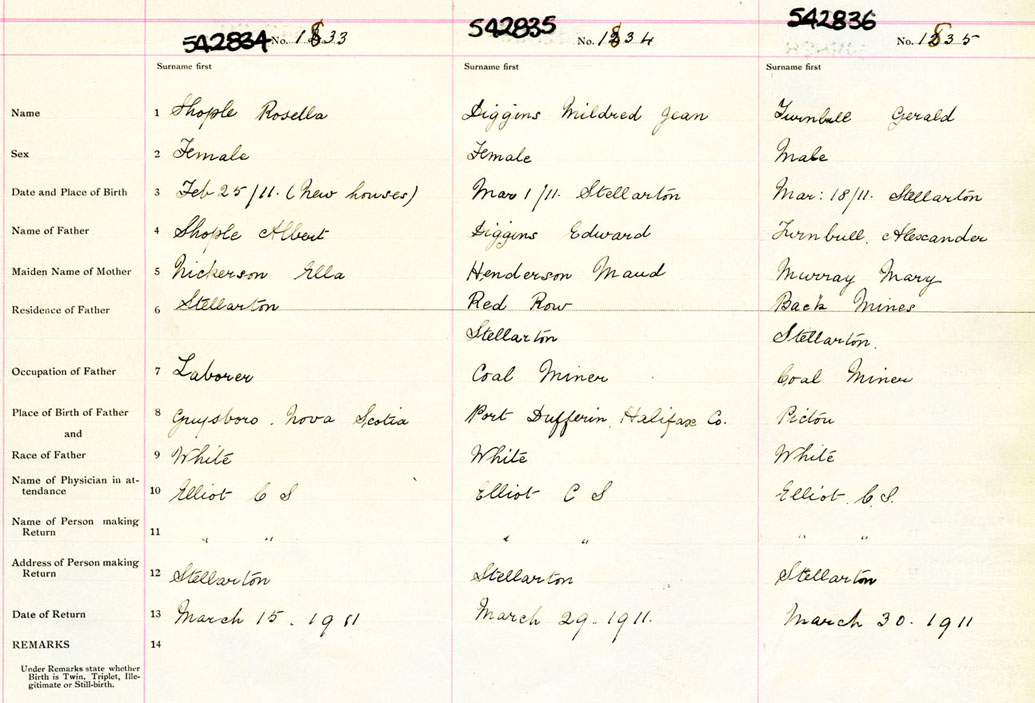 542834 No. 1833 542835 No. 1834 542836 No. 1835
Surname first Surname first Surname first
Name 1 Shople Rosella Diggins Mildred Jean Turnbull Gerald
Sex 2 Female Female Male
Date and Place of Birth 3 Feb 25/11. (New houses) Mar 1/11. Stellarton Mar: 18/11. Stellarton
Name of Father 4 Shople Albert Diggins Edward Turnbull, Alexander
Maiden Name of Mother 5 Nickerson Ella Henderson Maud Murray Mary
Residence of Father 6 Stellarton Red Row Back Mines
Stellarton Stellarton.
Occupation of Father 7 Laborer Coal Miner Coal Miner
Place of Birth of Father 8 Guysboro, Nova Scotia Port Dufferin, Halifax Co. Pictou
and
Race of Father 9 White White White
Name of Physician in at-
tendance 10 Elliot C S Elliot C S Elliot. C. S.
Name of Person making
Return 11 " " " " " "
Address of Person making
Return 12 Stellarton Stellarton Stellarton
Date of Return 13 March 15. 1911 March 29. 1911. March 30. 1911
REMARKS 14
Under Remarks state whether
Birth is Twin, Triplet, Ille-
gitimate or Still-birth.